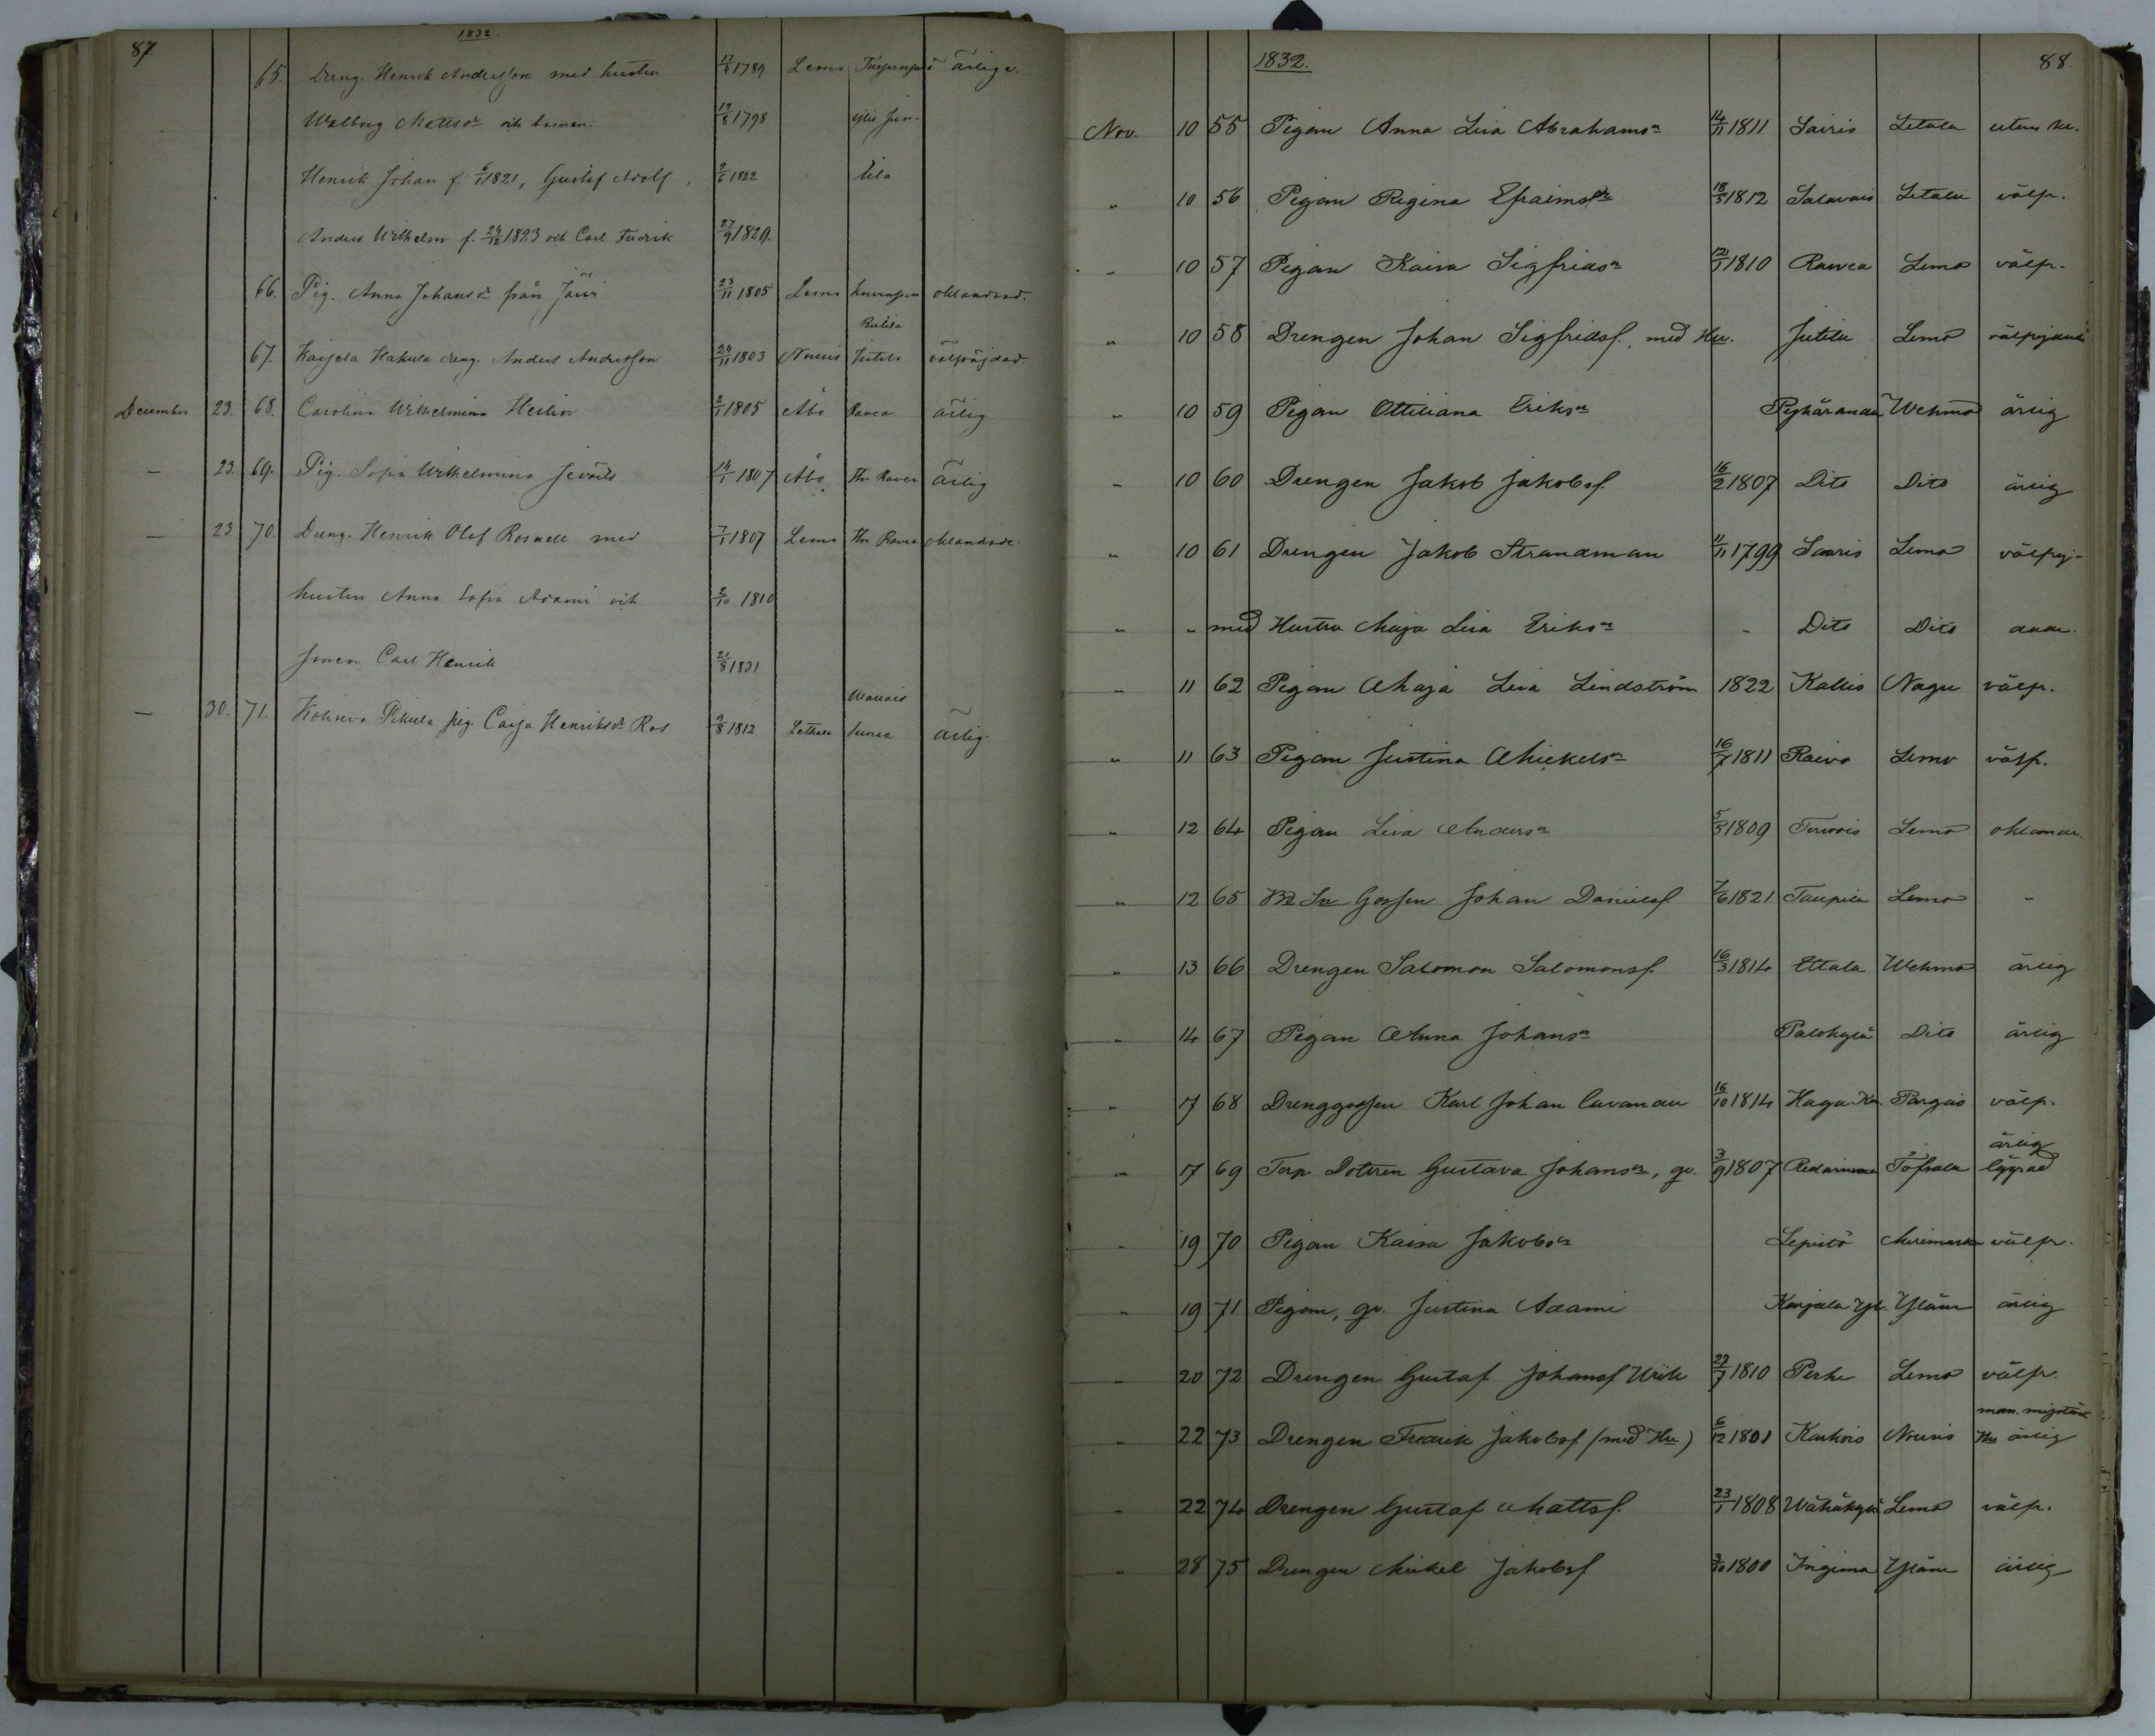 87
1832.
65. Dreng. Henrik Andersson med hustru 17/6 1789 Lemo ärliga.
Walborg Mattsdr och barnen. 19/8 1798
Henrik Johan f. 6/1 1821, Gustaf Adolf, 2/6 1822
Anders Wilhelm f. 24/12 1823 och Carl Fredrik 27/9 1829.
66. Pig. Anna Johansdr från Järvi 23/11 1805 Lemo oklandrad.
67. Karjela Hakula dreng. Anders Andersson 24/11 1803 Nousis Jutila välfräjdad
December 23. 68. Carolina Wilhelmina Hedin 2/1 1805 Åbo Ravea ärlig
— 23. 69. Pig. Sofia Wilhelmina 14/1 1807 Åbo Hr Ravea ärlig
— 23 70. Dreng. Henrik Olof Rosnell med 7/1 1807 Lemo Hr Ravea oklandrade.
hustru Anna Sofia Adami och 2/10 1810
sonen Carl Henrik 21/8 1831
— 30. 71. Pukula pig. Caisa Henriksdr Ros 2/8 1812 Lethala ärlig.
1832. 88.
Nov. 10 55 Pigan Anna Lisa Abrahamsn 14/11 1811 Sairis Letala
" 10 56 Pigan Regina Efraimsdr 18/5 1812 Salavais Letala välfr.
" 10 57 Pigan Kaisa Sigfridsn 12/1 1810 Ravea Lemo välfr.
" 10 58 Drengen Johan Sigfridsf. med Hu. Jutila Lemo välfrejdade
" 10 59 Pigan Ottiliana Eriksn Pyhäranda Wehmo ärlig
" 10 60 Drengen Jakob Jakobsf. 16/2 1807 Dito Dito ärlig
" 10 61 Drengen Jakob Strandman 11/11 1799 Saaris Lemo välfrej-
" " med Hustru Maja Lisa Eriksn - Dito Dito
" 11 62 Pigan Maja Lisa Lindström 1822 Kallis Nagu välfr.
" 11 63 Pigan Justina Mickelsn 16/7 1811 Raivo Lemo välfr.
" 12 64 Pigan Lisa Andersn 5/3 1809 Tervois Lemo
" 12 65 Gossen Johan Danielsf 7/6 1821 Taupila Lemo -
" 13 66 Drengen Salomon Salomonsf. 16/3 1814 Ettala Wehmo ärlig
" 14 67 Pigan Anna Johansn Palokylä Dito ärlig
" 17 68 Drenggossen Karl Johan Cavander 16/10 1814 Haga Ka. Pargas välfr.
ärlig
" 17 69 Torp Dottren Gustava Johansn, qv. 3/9 1807 Töfsala
" 19 70 Pigan Kaisa Jakobsn Lepistö Merimasku välfr.
" 19 71 Pigan, qv. Justina Adami Karjala Yl. Yläne ärlig
" 20 72 Drengen Gustaf Johansf 22/7 1810 Perhe Lemo välfr.
" 22 73 Drengen Fredrik Jakobsf (med Hu) 6/12 1801 Karkois Nousis Hu ärlig
" 22 74 Drengen Gustaf Mattsf. 23/1 1808 Wähäkylä Lemo välfr.
" 28 75 Drengen Mickel Jakobsf 3/10 1800 Yläne ärlig